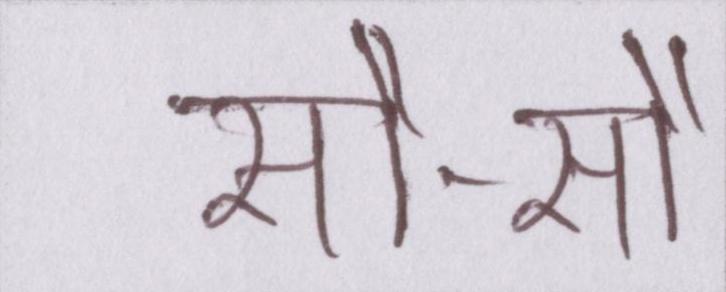 सौ-सौ